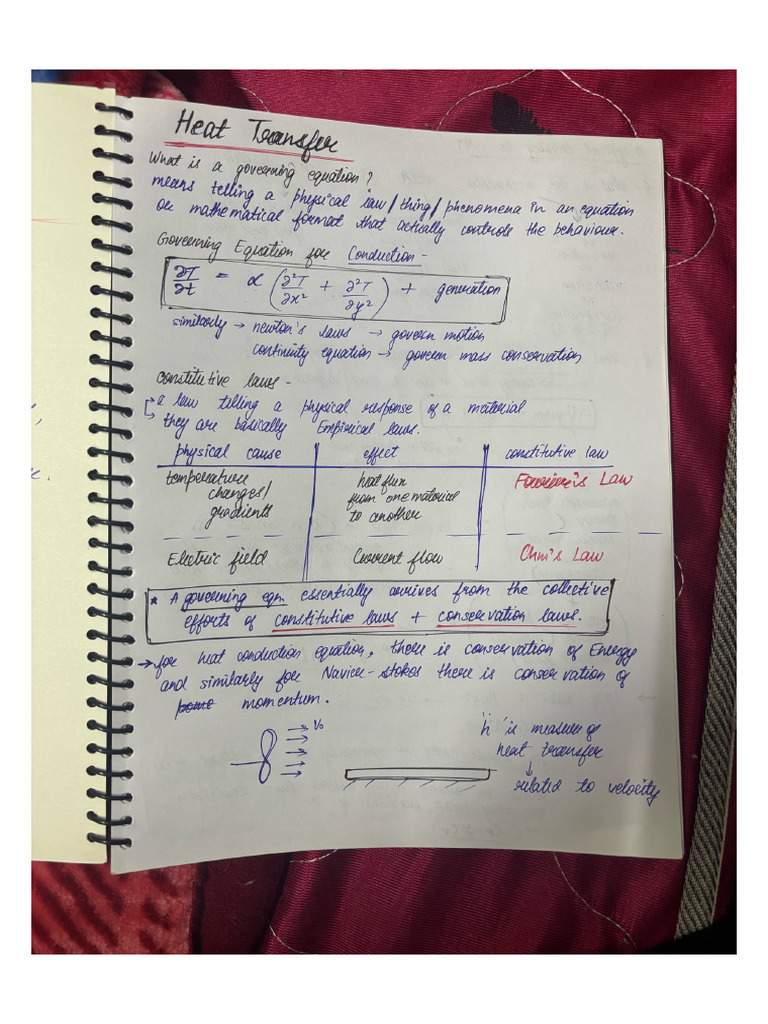 Heat Transfer
What is a governing equation?
means telling a physical law/thing/phenomena in an equation
or mathematical format that actually controls the behaviour.
Governing Equation for Conduction -
∂T/∂t = α (∂²T/∂x² + ∂²T/∂y²) + generation
similarly → newton's laws → govern motion
continuity equation → govern mass conservation
constitutive laws -
→ a law telling a physical response of a material
→ they are basically Empirical laws.
physical cause effect constitutive law
temperature heat flux Fourier's Law
changes/ from one material
gradients to another
Electric field Current flow Ohm's Law
* A governing eqn. essentially arrives from the collective
efforts of constitutive laws + conservation laws.
→ for heat conduction equation, there is conservation of Energy
and similarly for Navier-stokes there is conservation of
momentum.
V₀ 'h' is measure of
heat transfer
↓
related to velocity